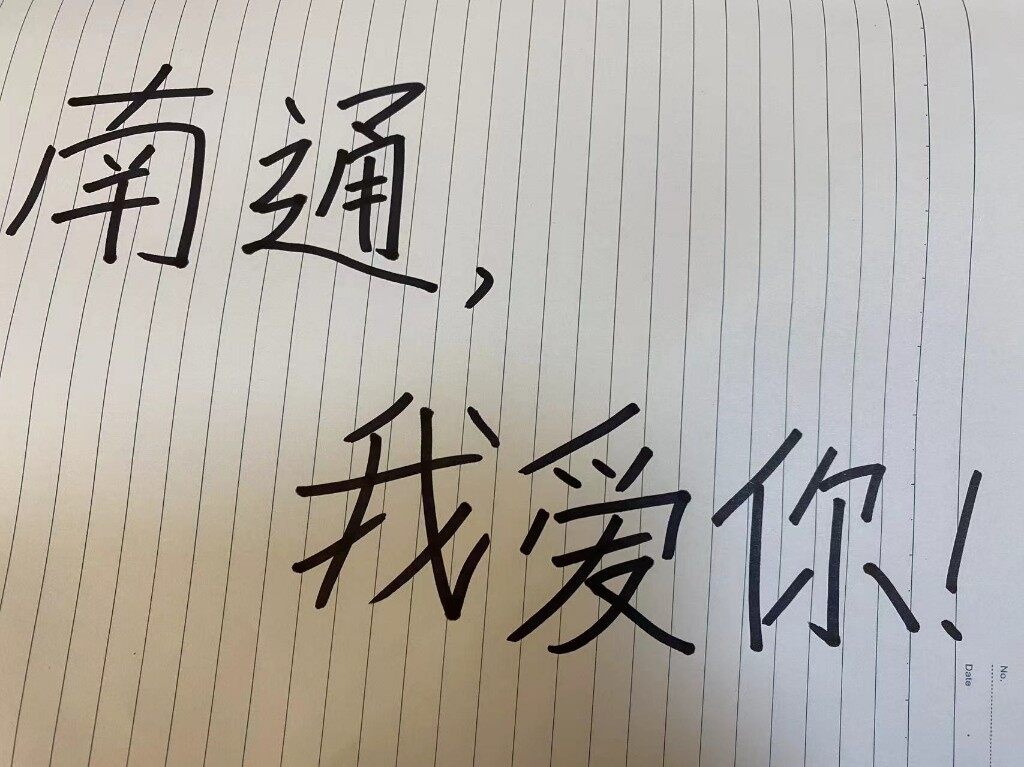 南通,
我爱你!
No.
Date